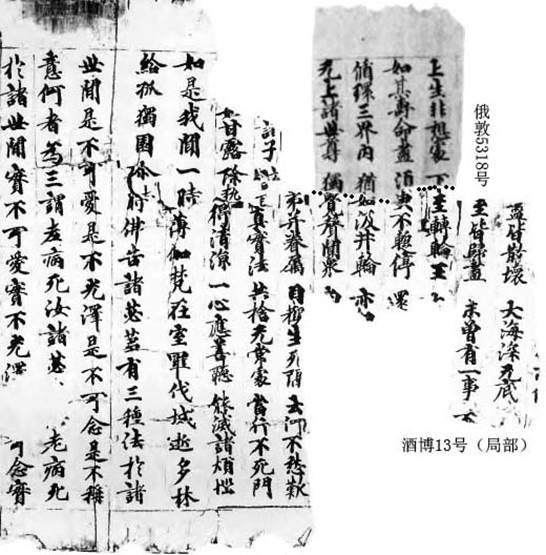 盡皆散壞 大海深无底
至皆歸盡 未曾有一事 不
俄敦5318号
上至非想處 下至轉輪王
如其壽命盡 須臾不暫停 還
循環三界內 猶如汲井輪 亦
无上諸世尊 獨覺聲聞眾
子 弟并眷屬 目觀生死隔 云何不愁歎
真實法 共捨无常處 當行不死門
如甘露 除熱得清涼 一心應善聽 能滅諸煩惱
如是我聞一時薄伽梵在室羅伐城逝多林
給孤獨園尒時佛告諸苾芻有三種法於諸
世間是不可愛是不光澤是不可念是不稱
意何者為三謂老病死汝諸苾 老病死
於諸世間實不可愛實不光澤 可念實
酒博13号（局部）